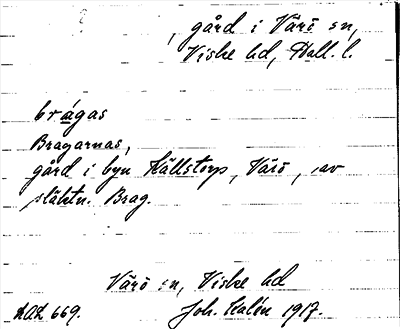 , gård i Värö sn,
Viske hd, Hall. l.
brágas
Bragarnas,
gård i byn Källstorp, Värö, av
släktn. Brag.
Värö sn, Viske hd
DAL 669. Joh. Kalén 1917.